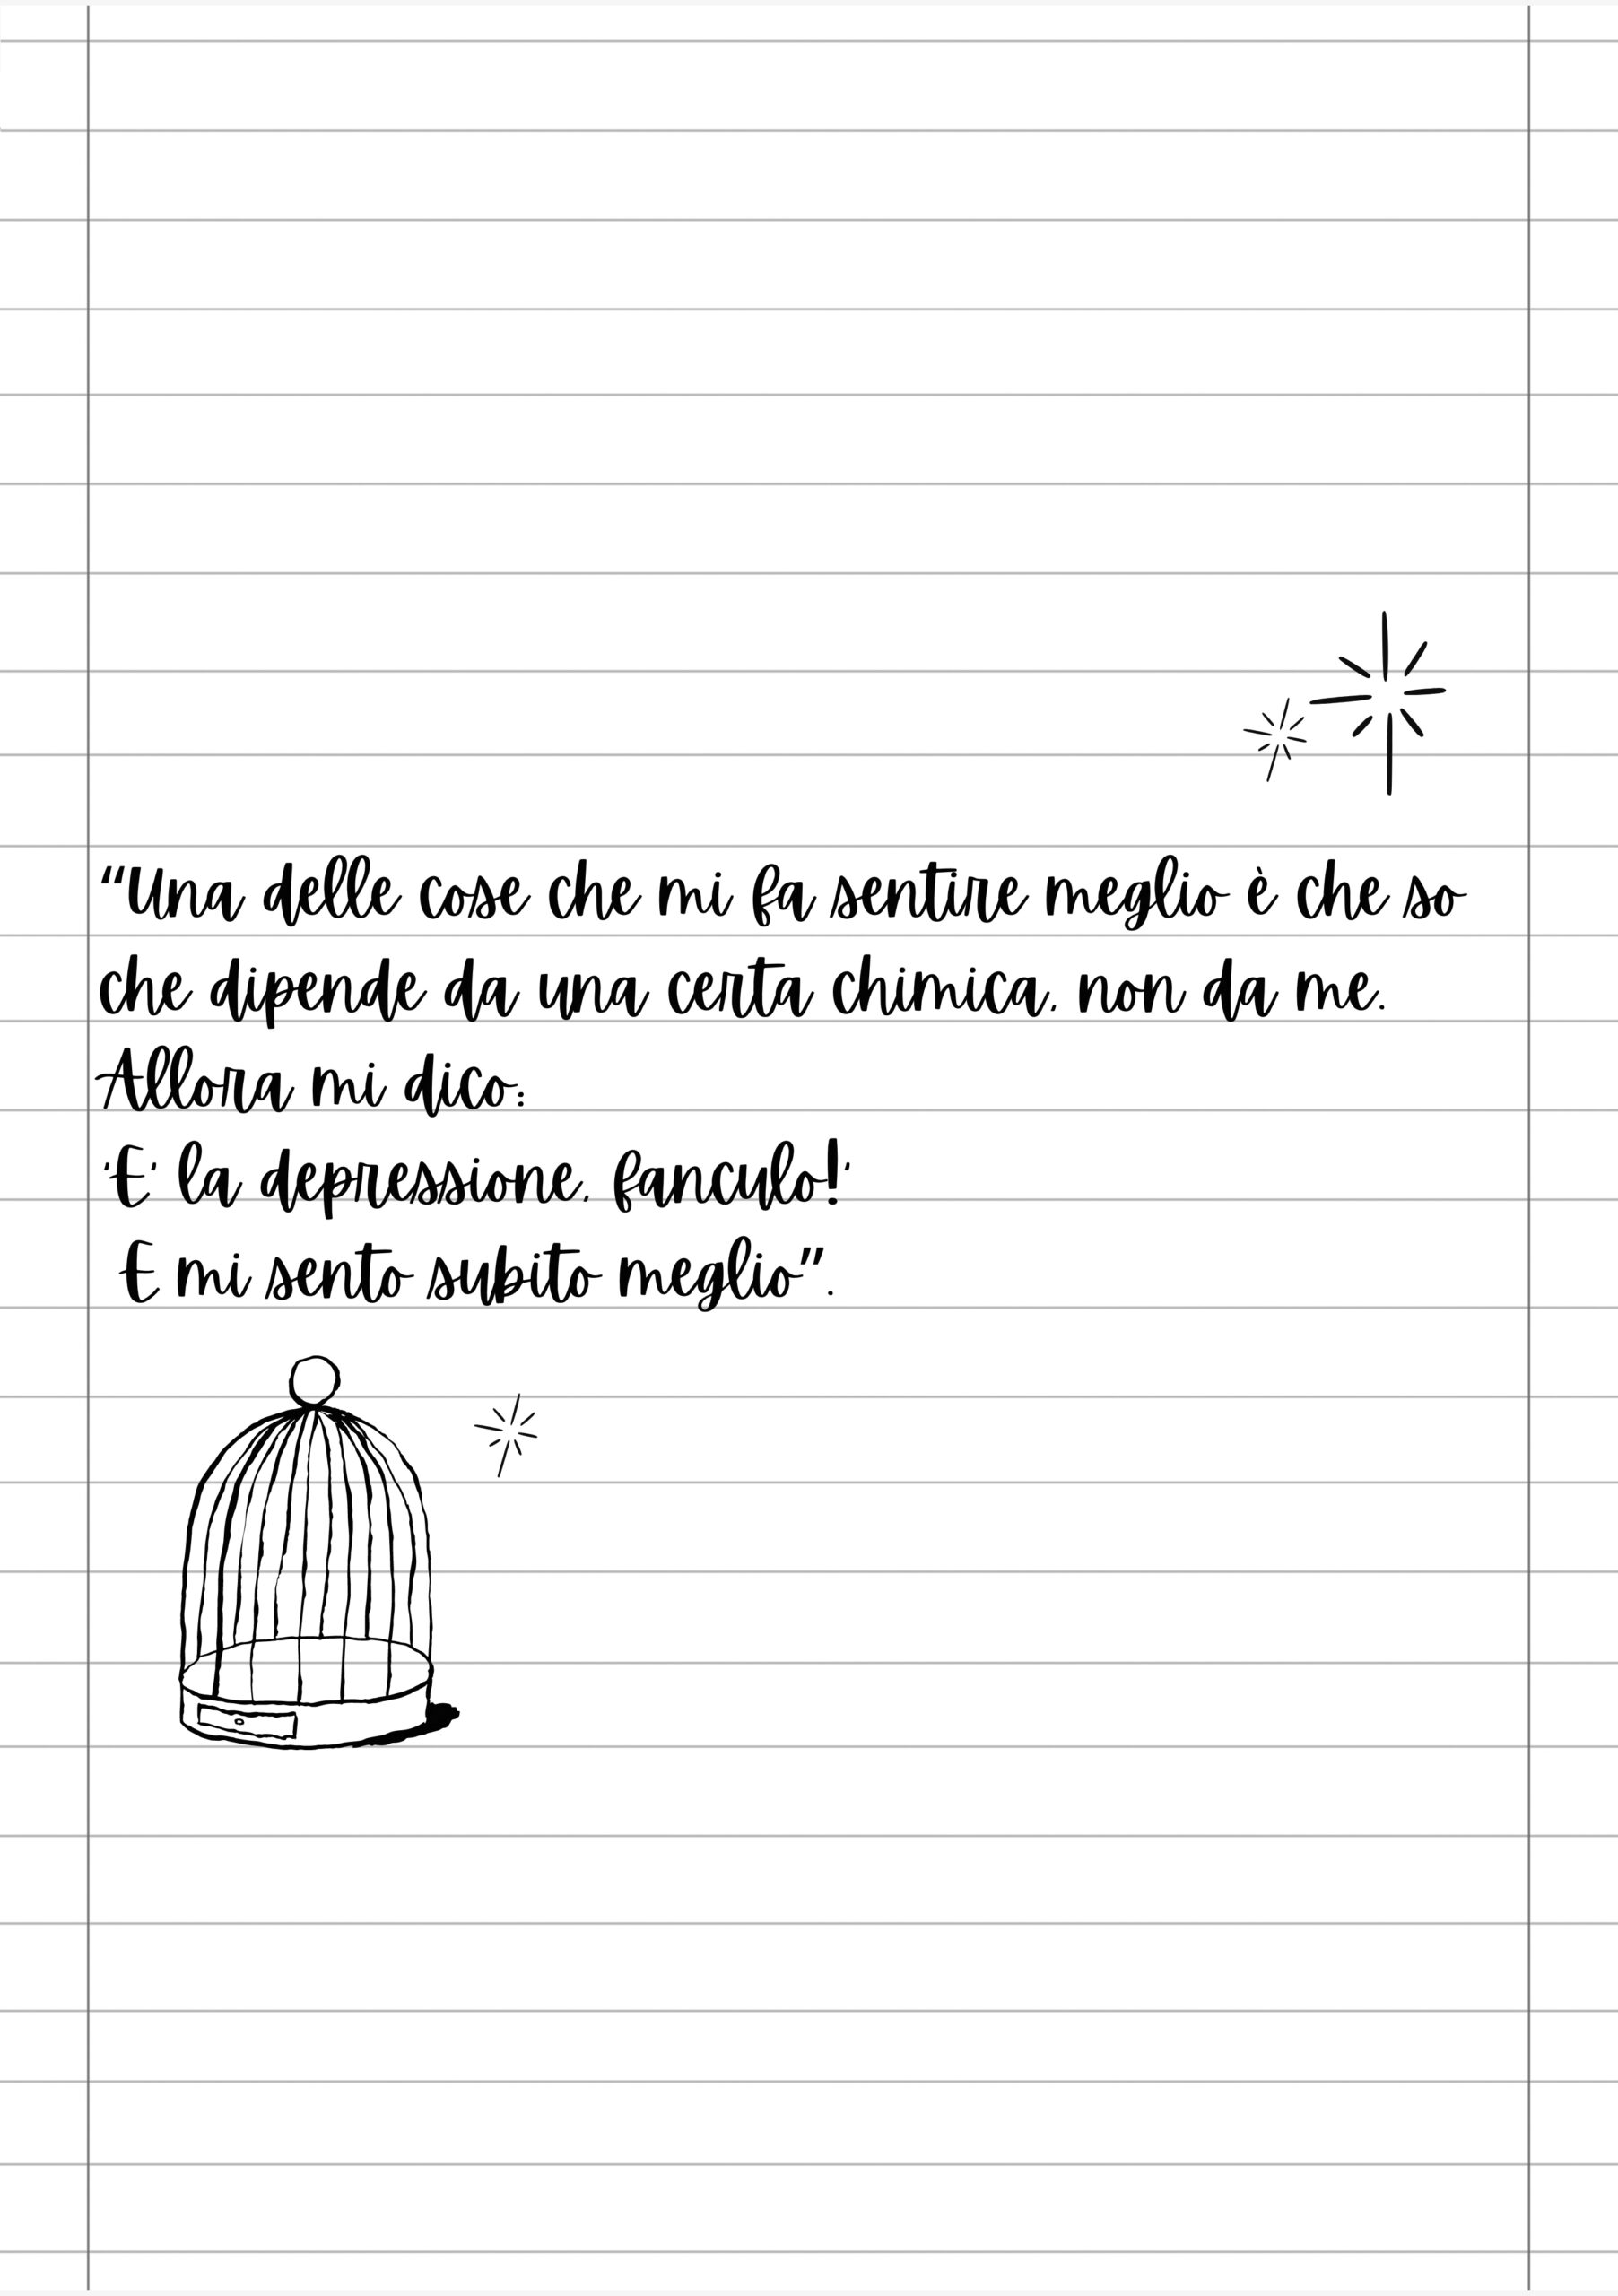 “Una delle cose che mi fa sentire meglio è che so
che dipende da una certa chimica, non da me.
Allora mi dico:
'E' la depressione, fanculo!'
E mi sento subito meglio”.